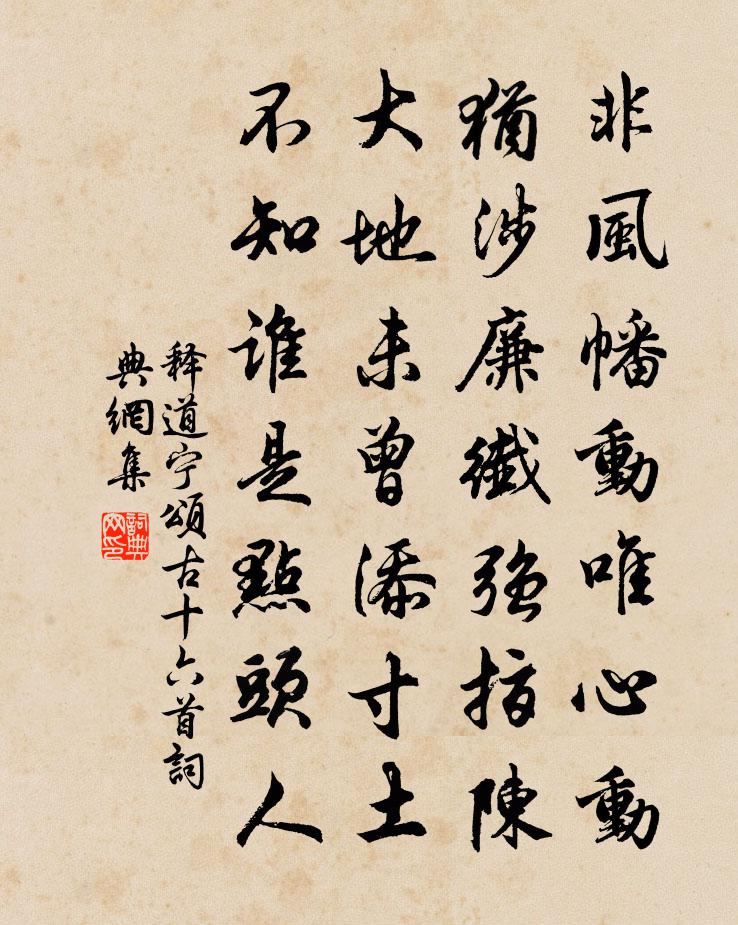 非風幡動唯心動
猶涉廉纖強指陳
大地未曾添寸土
不知誰是點頭人
释道宁頌古十六首詞
典網集
詞典网印